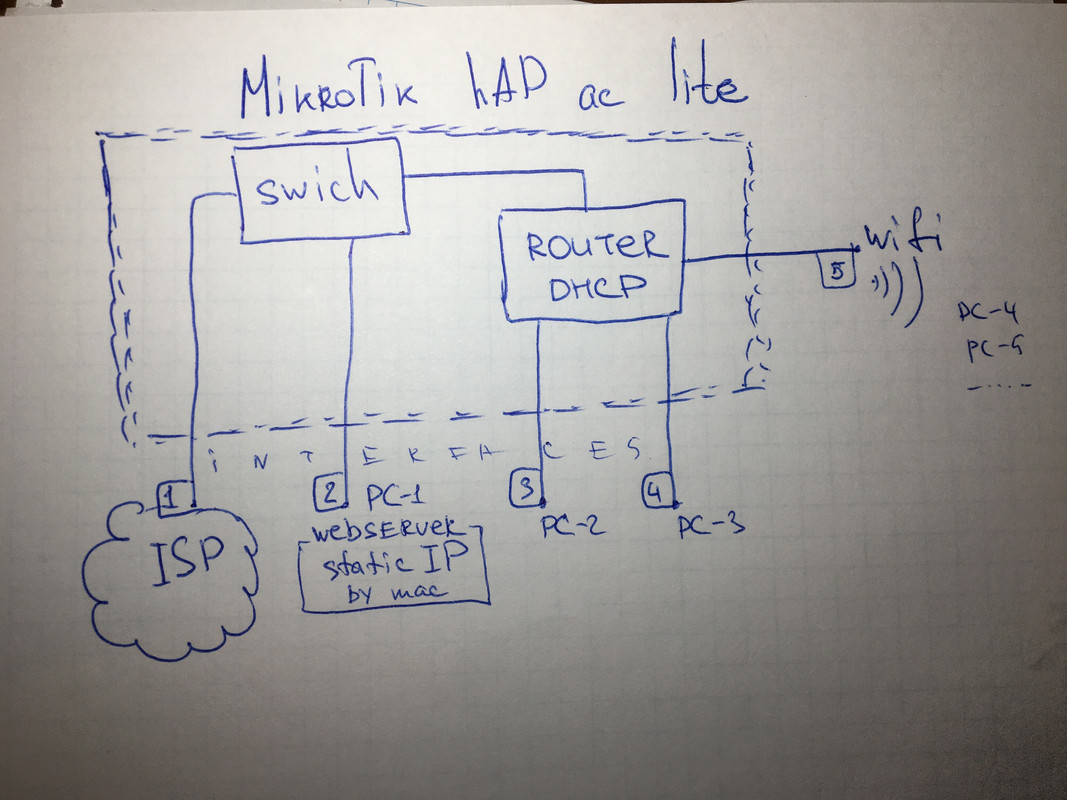 MikroTik hAP ac lite
swich
ROUTER
DHCP
wifi
5
PC-4
PC-5
INTERFACES
1
ISP
2
PC-1
webSERVER
static IP
by mac
3
PC-2
4
PC-3